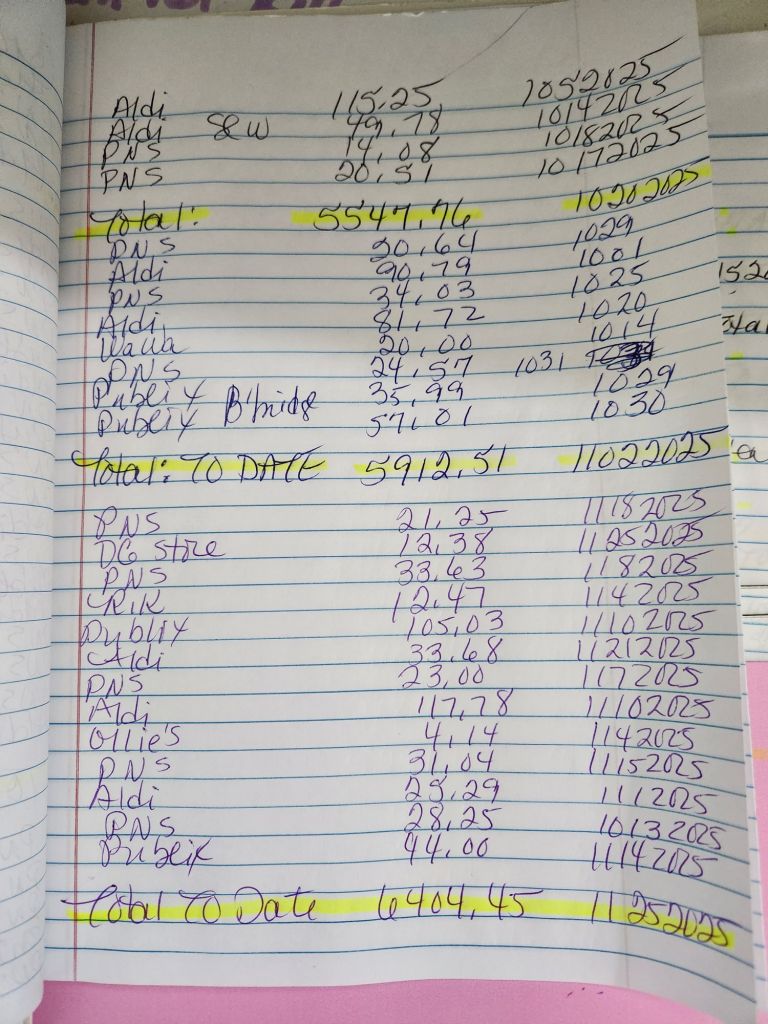 Aldi 115.25 1052025
Aldi S&W 49.78 10142025
PNS 14.08 10182025
PNS 20.51 10172025
Total: 5547.76 10202025
PNS 20.64 1029
Aldi 90.79 1001
PNS 34.03 1025
Aldi 81.72 1020
Wawa 20.00 1014
PNS 24.57 1031
Publix 35.99 1029
Publix B'bridge 57.01 1030
Total: TO DATE 5912.51 11022025
PNS 21.25 11182025
DG Store 12.38 11252025
PNS 33.63 1182025
12.47 1142025
Publix 105.03 11102025
Aldi 33.68 11212025
PNS 23.00 1172025
Aldi 117.78 11102025
Ollie's 4.14 1142025
PNS 31.04 11152025
Aldi 25.29 1112025
PNS 28.25 10132025
Publix 44.00 11142025
Total TO Date 6404.45 11252025